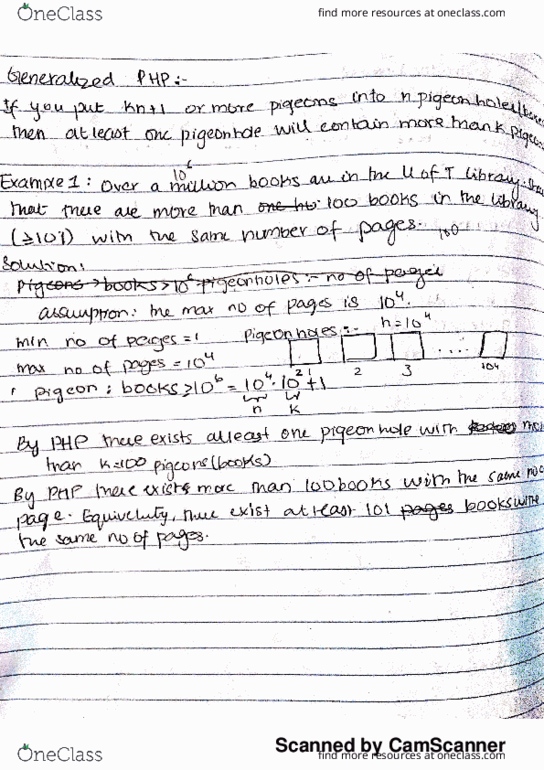 OneClass
find more resources at oneclass.com
Generalized PHP:-
If you put kn+1 or more pigeons into n pigeonholes
then atleast one pigeonhole will contain more than k
10^6
Example 1: Over a million books are in the U of T library.
that there are more than one hu 100 books in the library
(≥101) with the same number of pages. 100
Solution:
Pigeons → books > 10^6 pigeonholes :- no of pages
assumption: the max no of pages is 10^4.
min no of pages = 1 Pigeonholes:- n = 10^4
max no of pages = 10^4 1 2 3 .... 10^4
pigeon: books ≥ 10^6 = 10^4 · 10^2 + 1
n k
By PHP there exists atleast one pigeonhole with
than k=100 pigeons (books)
By PHP there exists more than 100 books with the same no
page. Equivelutly, there exist at least 101 pages books with
the same no of pages.
Scanned by CamScanner
OneClass
find more resources at oneclass.com